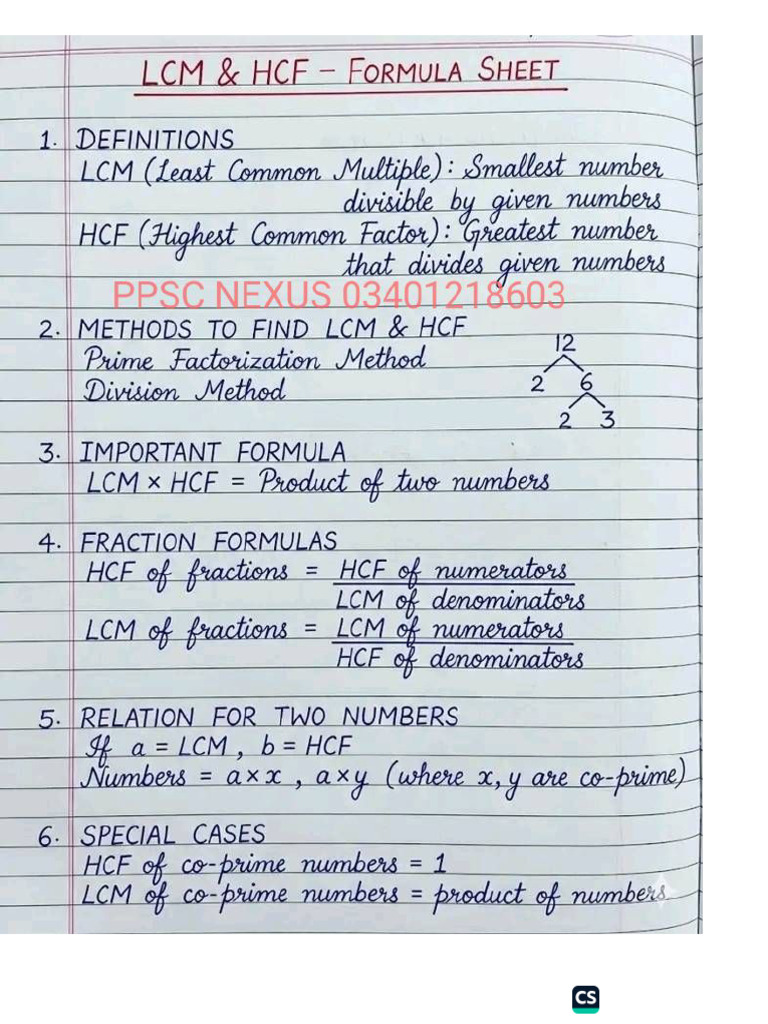 LCM & HCF – FORMULA SHEET
1. DEFINITIONS
LCM (Least Common Multiple): Smallest number
divisible by given numbers
HCF (Highest Common Factor): Greatest number
that divides given numbers
PPSC NEXUS 03401218603
2. METHODS TO FIND LCM & HCF
Prime Factorization Method
Division Method
12
2 6
2 3
3. IMPORTANT FORMULA
LCM × HCF = Product of two numbers
4. FRACTION FORMULAS
HCF of fractions = HCF of numerators
LCM of denominators
LCM of fractions = LCM of numerators
HCF of denominators
5. RELATION FOR TWO NUMBERS
If a = LCM, b = HCF
Numbers = a×x, a×y (where x, y are co-prime)
6. SPECIAL CASES
HCF of co-prime numbers = 1
LCM of co-prime numbers = product of numbers
CS